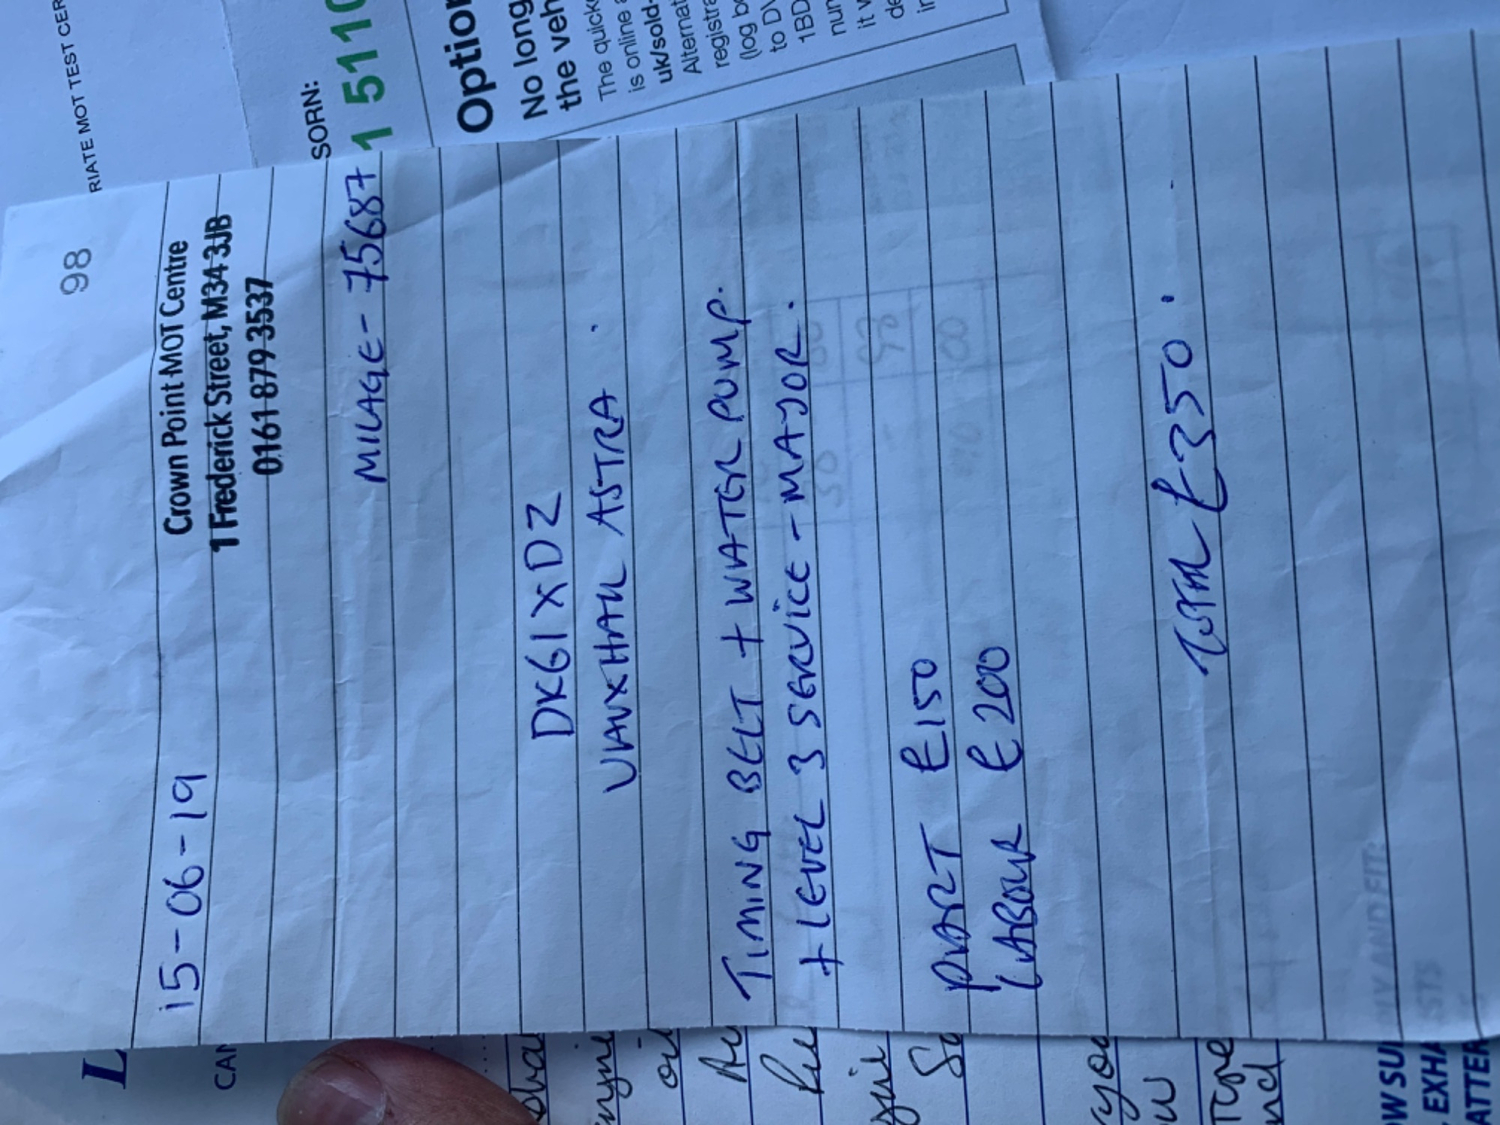 98
Crown Point MOT Centre
1 Frederick Street, M34 3JB
0161 879 3537
15-06-19
MILAGE - 75687
DK61XDZ
VAUXHALL ASTRA.
TIMING BELT + WATER PUMP.
+ LEVEL 3 SERVICE - MAJOR.
PART £150
LABOUR £200
TOTAL £350.
RIATE MOT TEST CER
SORN:
1 511
Option
No long
the veh
The quick
is online
uk/sold-
Alternat
registra
(log b
to DV
1BD
num
it
de
in
L
CAN
oil
you
Type
nd
OW SU LY AND FIT:
EXHA STS
ATTER